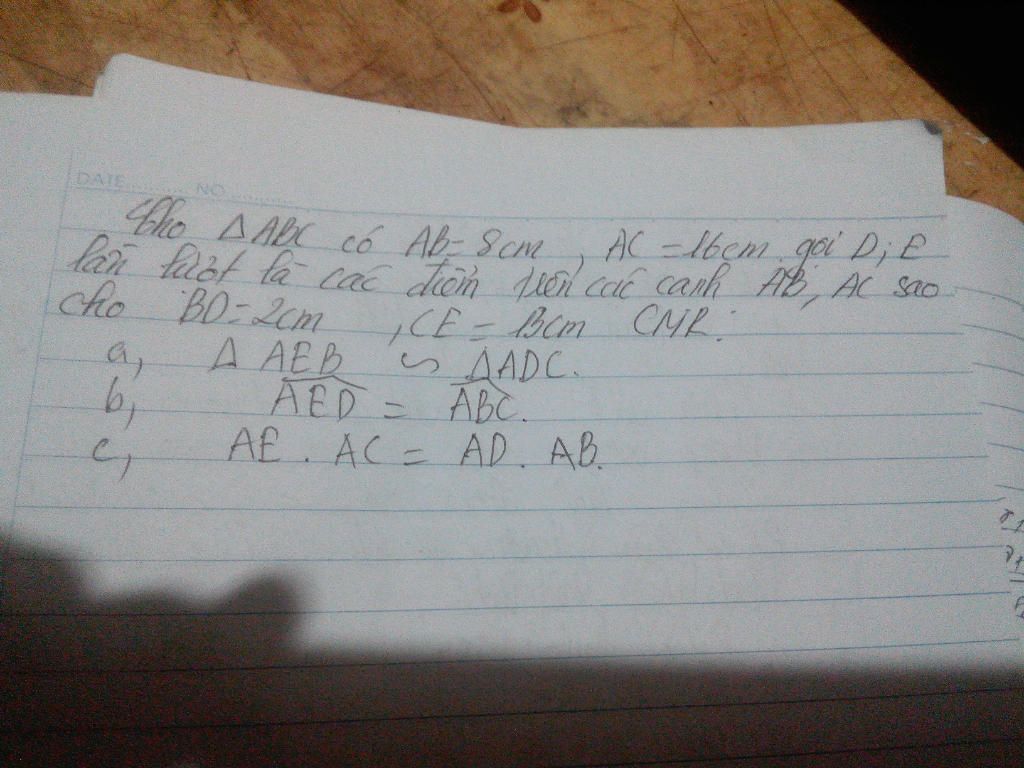 DATE.......... NO..........
Cho ΔABC có AB=8cm, AC=16cm. gọi D; E
lần lượt là các điểm trên các cạnh AB, AC sao
cho BD=2cm, CE=13cm CMR:
a, ΔAEB ∽ ΔADC.
b, \widehat{AED} = \widehat{ABC}.
c, AE. AC = AD. AB.